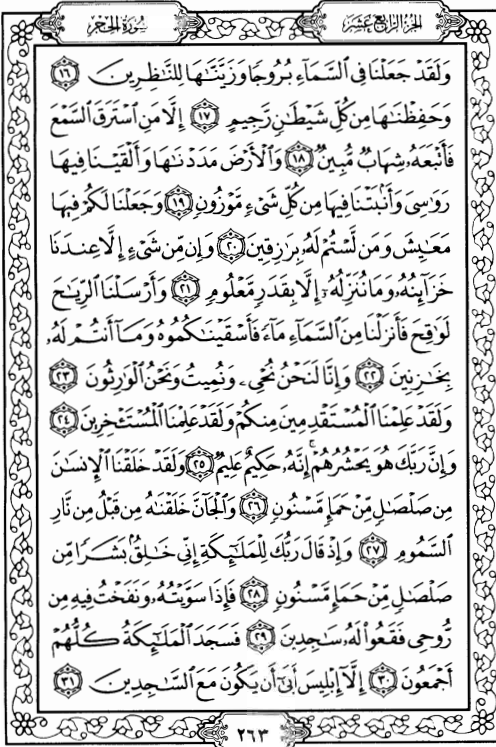 الجُزْءُ الرَّابِعَ عَشَرَ
سُورَةُ الحِجْرِ
وَلَقَدْ جَعَلْنَا فِى ٱلسَّمَآءِ بُرُوجًا وَزَيَّنَّٰهَا لِلنَّٰظِرِينَ ١٦
وَحَفِظْنَٰهَا مِن كُلِّ شَيْطَٰنٍ رَّجِيمٍ ١٧ إِلَّا مَنِ ٱسْتَرَقَ ٱلسَّمْعَ
فَأَتْبَعَهُۥ شِهَابٌ مُّبِينٌ ١٨ وَٱلْأَرْضَ مَدَدْنَٰهَا وَأَلْقَيْنَا فِيهَا
رَوَٰسِىَ وَأَنۢبَتْنَا فِيهَا مِن كُلِّ شَىْءٍ مَّوْزُونٍ ١٩ وَجَعَلْنَا لَكُمْ فِيهَا
مَعَٰيِشَ وَمَن لَّسْتُمْ لَهُۥ بِرَٰزِقِينَ ٢٠ وَإِن مِّن شَىْءٍ إِلَّا عِندَنَا
خَزَآئِنُهُۥ وَمَا نُنَزِّلُهُۥٓ إِلَّا بِقَدَرٍ مَّعْلُومٍ ٢١ وَأَرْسَلْنَا ٱلرِّيَٰحَ
لَوَٰقِحَ فَأَنزَلْنَا مِنَ ٱلسَّمَآءِ مَآءً فَأَسْقَيْنَٰكُمُوهُ وَمَآ أَنتُمْ لَهُۥ
بِخَٰزِنِينَ ٢٢ وَإِنَّا لَنَحْنُ نُحْىِۦ وَنُمِيتُ وَنَحْنُ ٱلْوَٰرِثُونَ ٢٣
وَلَقَدْ عَلِمْنَا ٱلْمُسْتَقْدِمِينَ مِنكُمْ وَلَقَدْ عَلِمْنَا ٱلْمُسْتَـْٔخِرِينَ ٢٤
وَإِنَّ رَبَّكَ هُوَ يَحْشُرُهُمْ ۚ إِنَّهُۥ حَكِيمٌ عَلِيمٌ ٢٥ وَلَقَدْ خَلَقْنَا ٱلْإِنسَٰنَ
مِن صَلْصَٰلٍ مِّنْ حَمَإٍ مَّسْنُونٍ ٢٦ وَٱلْجَآنَّ خَلَقْنَٰهُ مِن قَبْلُ مِن نَّارِ
ٱلسَّمُومِ ٢٧ وَإِذْ قَالَ رَبُّكَ لِلْمَلَٰٓئِكَةِ إِنِّى خَٰلِقٌۢ بَشَرًا مِّن
صَلْصَٰلٍ مِّنْ حَمَإٍ مَّسْنُونٍ ٢٨ فَإِذَا سَوَّيْتُهُۥ وَنَفَخْتُ فِيهِ مِن
رُّوحِى فَقَعُوا۟ لَهُۥ سَٰجِدِينَ ٢٩ فَسَجَدَ ٱلْمَلَٰٓئِكَةُ كُلُّهُمْ
أَجْمَعُونَ ٣٠ إِلَّآ إِبْلِيسَ أَبَىٰٓ أَن يَكُونَ مَعَ ٱلسَّٰجِدِينَ ٣١
٢٦٣